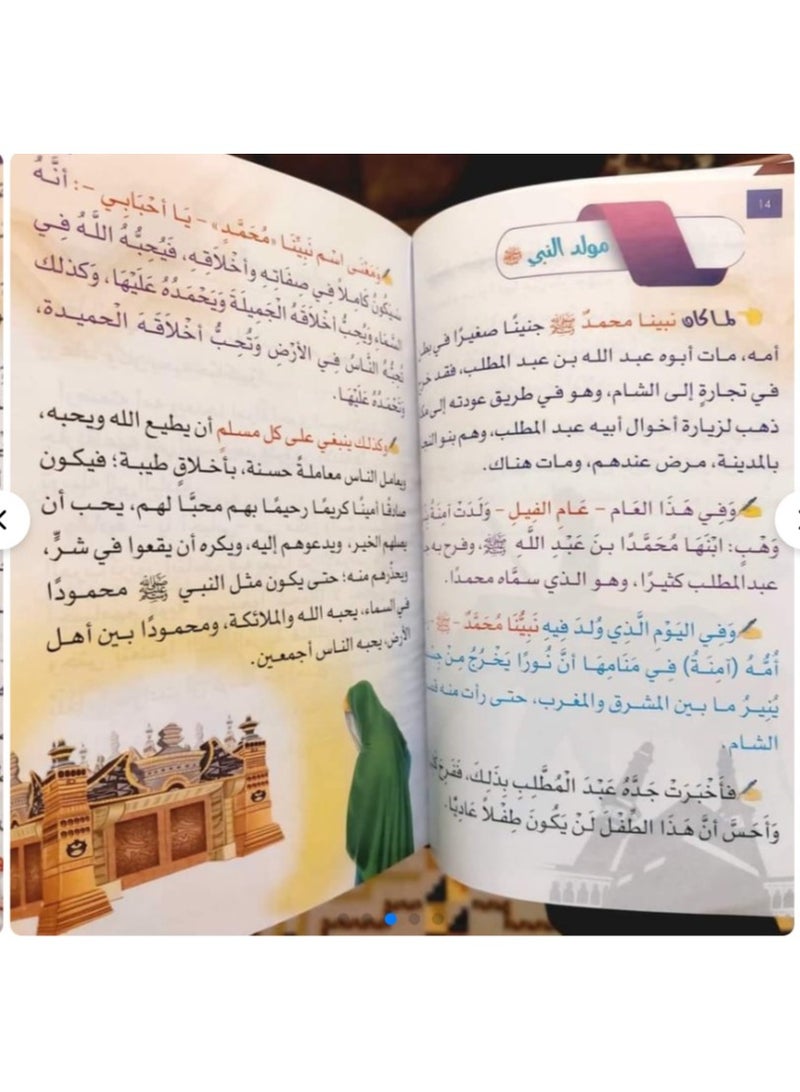 14
مولد النبي ﷺ
لما كان نبينا محمدٌ ﷺ جنينًا صغيرًا في
أمه، مات أبوه عبد الله بن عبد المطلب، فقد
في تجارةٍ إلى الشام، وهو في طريق عودته إلى
ذهب لزيارة أخوال أبيه عبد المطلب، وهم بنو
بالمدينة، مرض عندهم، ومات هناك.
وَفِي هَذَا العَام – عَامِ الفِيلِ – وَلَدَتْ آمِنَةُ
وَهْبٍ: ابْنَهَا مُحَمَّدًا بنَ عَبْدِ اللَّهِ ﷺ، وفرح به
عبد المطلب كثيرًا، وهو الذي سمَّاه محمدًا.
وَفِي اليَوْمِ الَّذِي وُلدَ فِيهِ نَبِيُّنَا مُحَمَّدٌ – ﷺ –
أُمُّهُ (آمِنَةُ) فِي مَنَامِهَا أنَّ نُورًا يَخْرُجُ مِنْ
يُنِيرُ ما بين المشرق والمغرب، حتى رأت منه
الشام.
فَأَخْبَرَتْ جَدَّهُ عَبْدَ الْمُطَّلِبِ بِذَلِكَ، فَفَرِحَ
وَأَحَسَّ أنَّ هَذَا الطِّفْلَ لَنْ يَكُونَ طِفْلاً عَادِيًّا.
وَمَعْنَى اسْم نَبِيِّنَا «مُحَمَّدٍ» – يَا أَحْبَابِي –: أنَّهُ
سَيَكُونُ كَامِلاً فِي صِفَاتِهِ وأَخْلاَقِهِ، فَيُحِبُّهُ اللَّهُ فِي
السَّمَاءِ وَيُحِبُّ أَخْلاَقَهُ الْجَمِيلَةَ وَيَحْمَدُهُ عَلَيْهَا، وَكَذَلك
تُحِبُّهُ النَّاسُ فِي الأَرْضِ وَتُحِبُّ أَخْلاَقَهَ الْحَمِيدَة،
وَتَحْمَدُهُ عَلَيْهَا.
وكذلك ينبغي على كل مسلمٍ أن يطيع الله ويحبه،
ويعامل الناس معاملةً حسنة، بأخلاقٍ طيبة؛ فيكون
صادقًا أمينًا كريمًا رحيمًا بهم محبًّا لهم، يحب أن
يصلهم الخير، ويدعوهم إليه، ويكره أن يقعوا في شرٍّ،
ويحذِّرهم منه؛ حتى يكون مثل النبي ﷺ محمودًا
في السماء، يحبه الله والملائكة، ومحمودًا بين أهل
الأرض، يحبه الناس أجمعين.